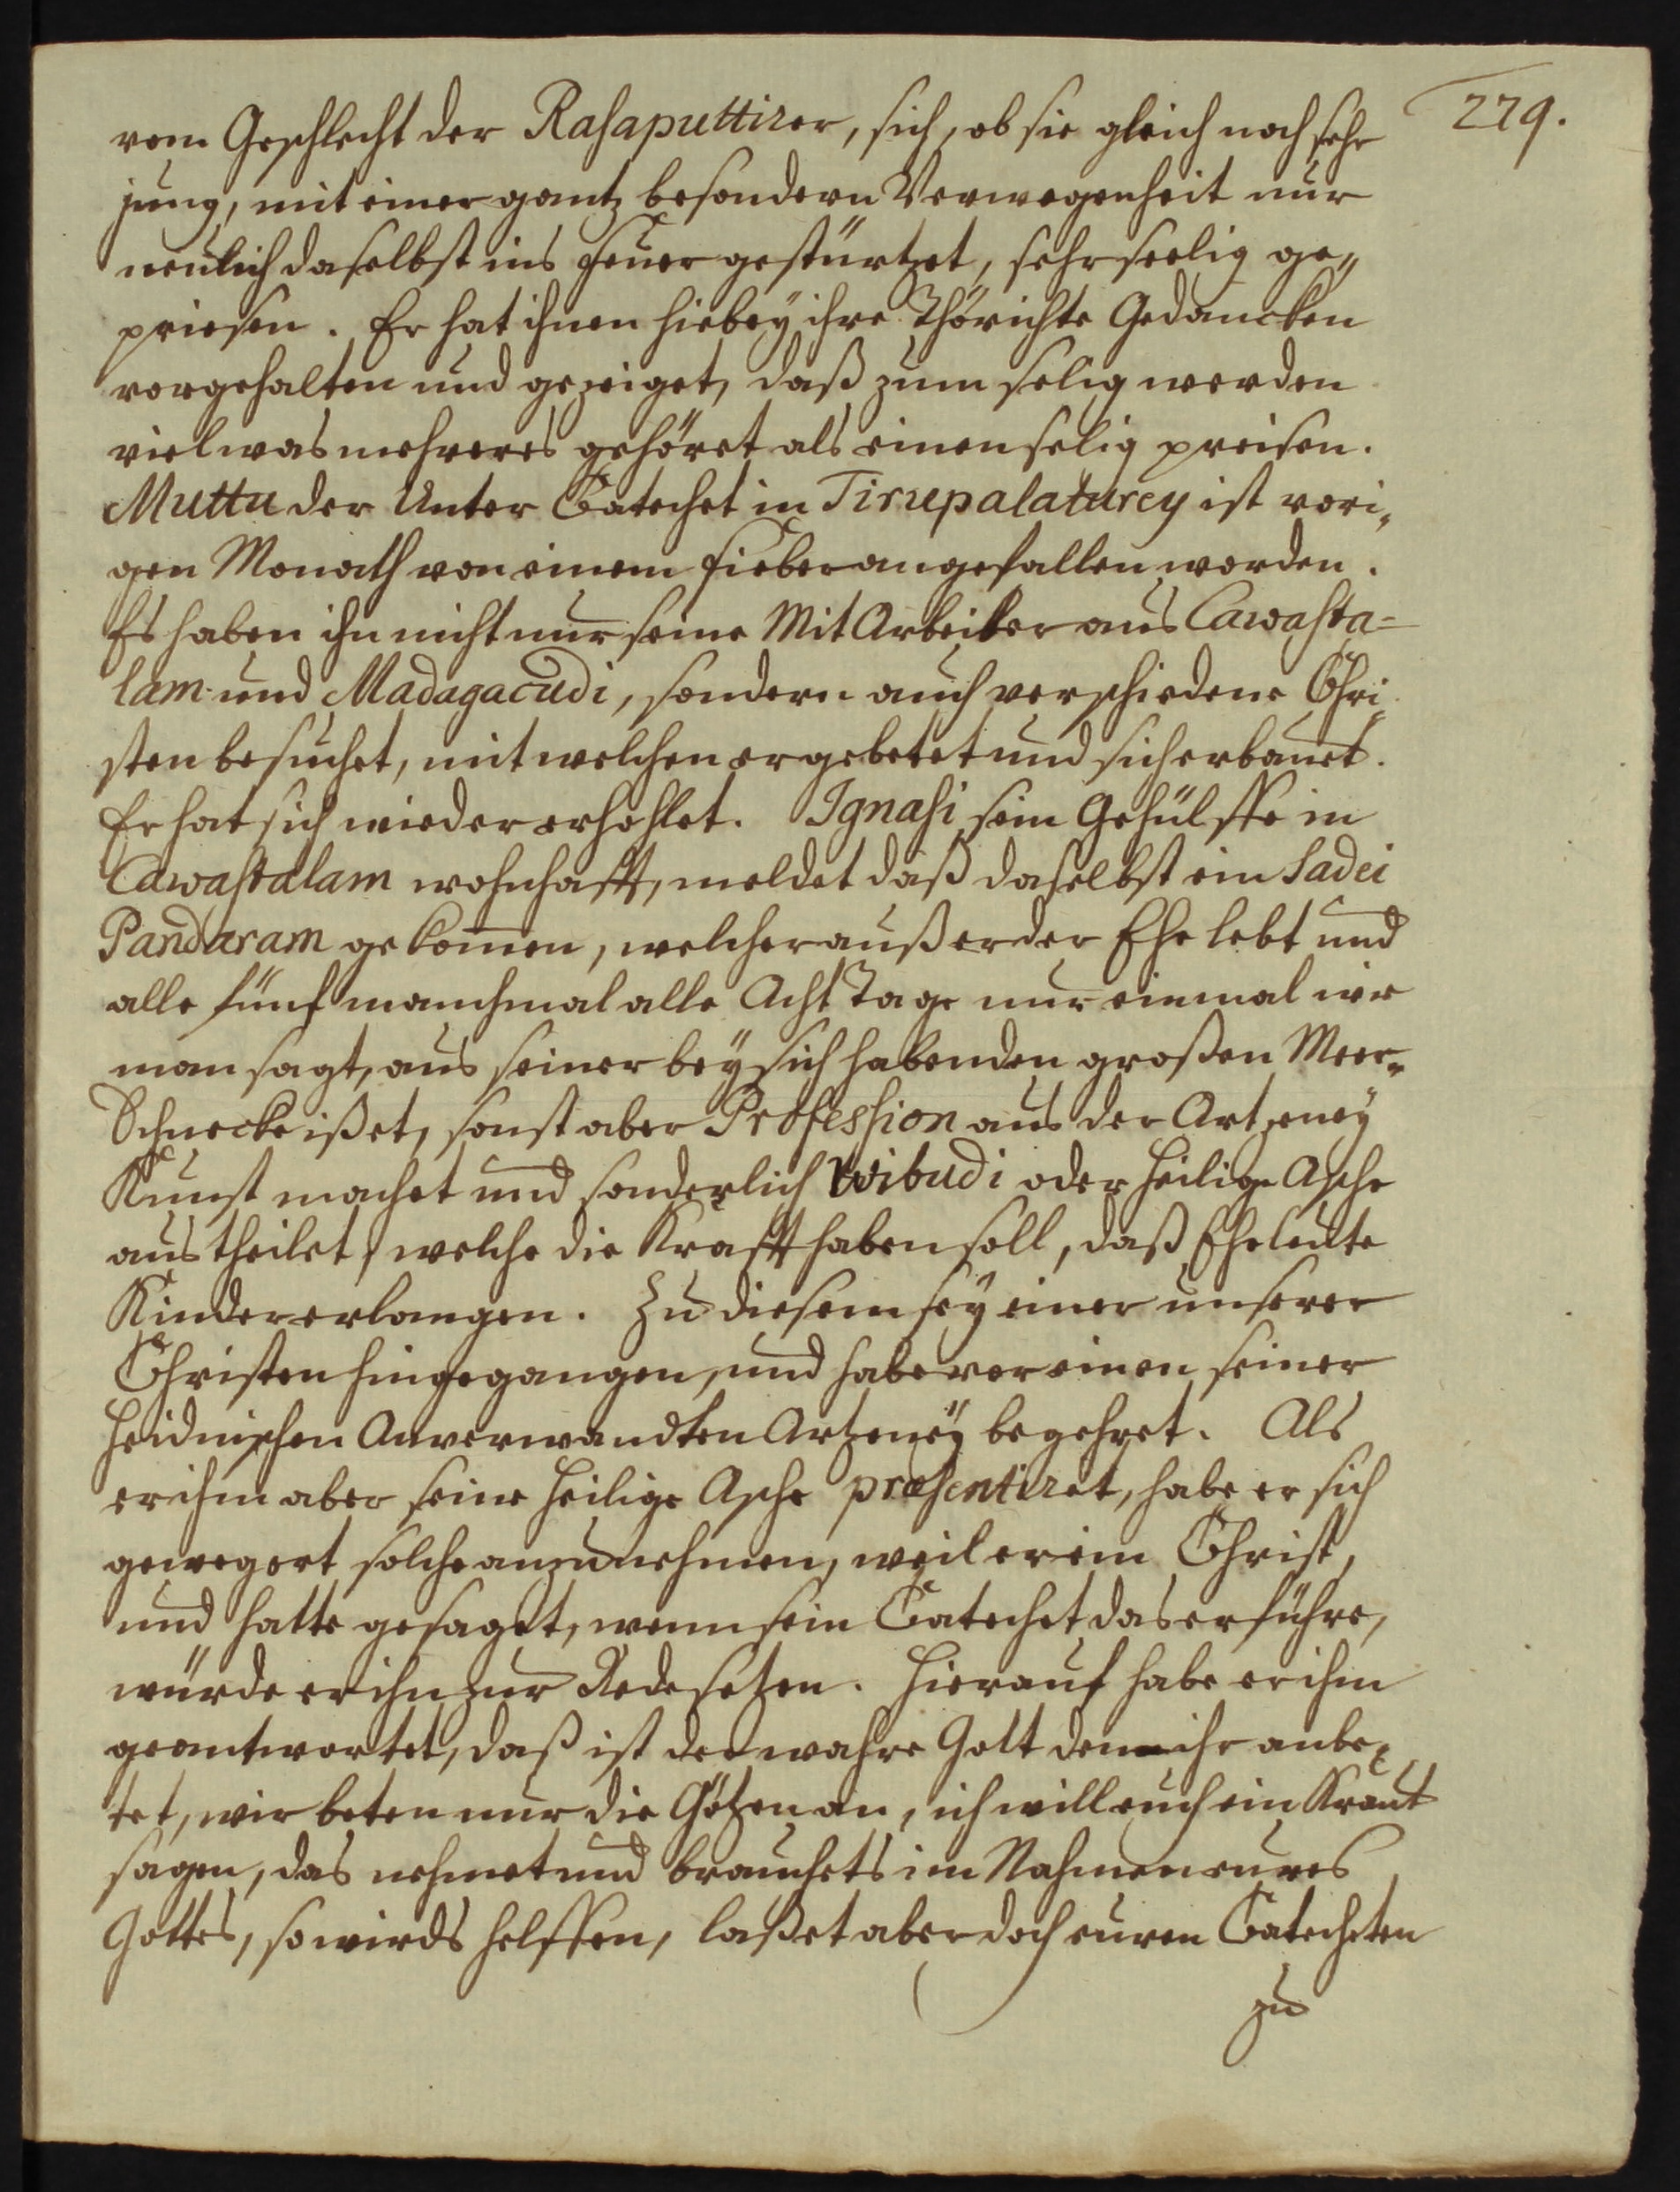 279.
vom Geschlecht der Rasaputtirer, sich, ob sie gleich noch sehr
jung, mit einer gantz besondern Verwegenheit nur
neulich daselbst ins Feuer gestürtzet, sehr seelig ge„
priesen. Er hat ihnen hiebey ihre thörichte Gedancken
vorgehalten und gezeiget, daß zum selig werden
viel was mehreres gehöret als einen selig preisen.
Muttu der Unter Catechet in Tirupalaturey ist vori„
gen Monath von einem Fieber angefallen worden.
Es haben ihn nicht nur seine Mit Arbeiter aus Cawasta=
lam und Madagacudi, sondern auch verschiedene Chri„
sten besuchet, mit welchen er gebetet und sich erbauet.
Er hat sich wieder erhohlet. Ignasi sein Gehülffe in
Cawastalam wohnhafft, meldet daß daselbst ein Sadei
Pandaram gekom̃en, welcher außer der Ehe lebt und
alle fünf manchmal alle Acht Tage nur einmal wie
man sagt, aus seiner bey sich habenden großen Meer„
Schnecke ißet, sonst aber Profession aus der Artzeney
Kunst machet und sonderlich Wibudi oder heilige Asche
austheilet, welche die Krafft haben soll, daß Eheleute
Kinder erlangen. Zu diesem sey einer unserer
Christen hingegangen, und habe vor einen seiner
heidnischen Anverwandten Artzeney begehret. Als
er ihm aber seine heilige Asche præsentiret, habe er sich
gewegert solche anzunehmen, weil er ein Christ,
und hatte gesaget, wenn sein Catechet das erführe,
würde er ihn zur Rede setzen. Hierauf habe er ihm
geantwortet, daß ist der wahre Gott den ihr anbe„
tet, wir beten nur die Götzen an, ich will euch ein Kraut
sagen, das nehmet und brauchets im Nahmen eures
Gottes, so wirds helffen, laßet aber doch euren Catecheten
zu